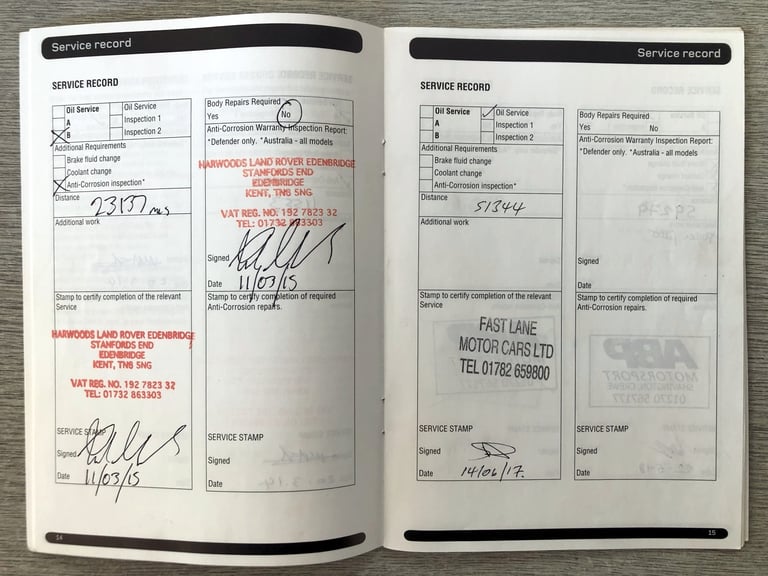 Service record
SERVICE RECORD
Oil Service
A
B
Oil Service
Inspection 1
Inspection 2
Additional Requirements
Brake fluid change
Coolant change
Anti-Corrosion inspection*
Distance
23137 mls
Additional work
Stamp to certify completion of the relevant
Service
HARWOODS LAND ROVER EDENBRIDGE
STANFORDS END
EDENBRIDGE
KENT, TN8 5NG
VAT REG. NO. 192 7823 32
TEL: 01732 863303
SERVICE STAMP
Signed
Date 11/03/15
Body Repairs Required
Yes No
Anti-Corrosion Warranty Inspection Report:
*Defender only. *Australia - all models
HARWOODS LAND ROVER EDENBRIDGE
STANFORDS END
EDENBRIDGE
KENT, TN8 5NG
VAT REG. NO. 192 7823 32
TEL: 01732 863303
Signed
Date 11/03/15
Stamp to certify completion of required
Anti-Corrosion repairs.
SERVICE STAMP
Signed
Date
14
Service record
SERVICE RECORD
Oil Service
A
B
Oil Service
Inspection 1
Inspection 2
Additional Requirements
Brake fluid change
Coolant change
Anti-Corrosion inspection*
Distance
51344
Additional work
Stamp to certify completion of the relevant
Service
FAST LANE
MOTOR CARS LTD
TEL 01782 659800
SERVICE STAMP
Signed
Date 14/06/17.
Body Repairs Required
Yes No
Anti-Corrosion Warranty Inspection Report:
*Defender only. *Australia - all models
Signed
Date
Stamp to certify completion of required
Anti-Corrosion repairs.
SERVICE STAMP
Signed
Date
15